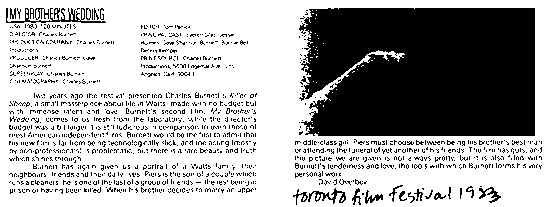 MY BROTHER'S WEDDING
USA 1983 120 MINUTES
DIRECTOR Charles Burnett
PRODUCTION COMPANY Charles Burnett
Productions
PRODUCER Charles Burnett, Gaye
Shannon-Burnett
SCREENPLAY Charles Burnett
CINEMATOGRAPHY Charles Burnett
EDITOR Tom Pennick
PRINCIPAL CAST Everett Silas, Jessie
Holmes, Gaye Shannon-Burnett, Ronnie Bell,
Dennis Kemper
PRINT SOURCE Charles Burnett
Productions,
Angeles, Calif.
Two years ago the festival presented Charles Burnett's Killer of
Sheep, a small masterpiece about life in Watts, made with no budget but
with immense talent and love. Burnett's second film, My Brother's
Wedding, comes to us fresh from the laboratory; while the director's
budget was a bit larger it is still ludicrous in comparison to even those of
most American independent films. Burnett would be the first to admit that
his new film is far from being technologically slick, and the acting (mostly
by non-professionals) is problematic, but there is a rare beauty and truth
which shines through.
Burnett has again given us a portrait of a Watts family, their
neighbours, friends and their daily lives. Piers is the son of a couple which
runs a cleaners; he is one of the last of a group of friends — the rest being in
prison or having been killed. When his brother decides to marry an upper
middle-class girl, Piers must choose between being his brother's best man
or attending the funeral of yet another of his friends. The film has guts, and
the picture we are given is not always pretty, but it is also filled with
Burnett's tenderness and love, the tools with which Burnett forms his very
personal work.
David Overbey
toronto film Festival 1983